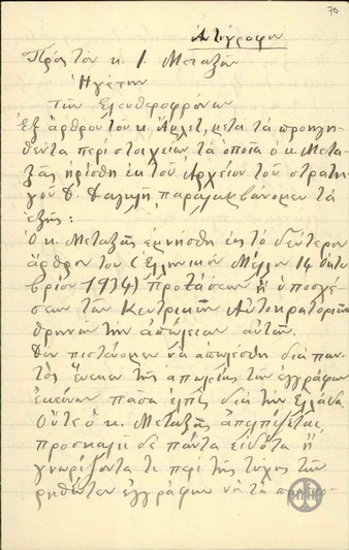 70
Αντίγραφον
Προς τον κ. Ι. Μεταξάν
Ηγέτην
των Ελευθεροφρόνων
Εξ άρθρου του κ. μετά τα προηγη-
θέντα περί στοιχείων τα οποία ο κ. Μετα-
ξάς εκ του Αρχείου του στρατη-
γού Δαγκλή παραλαμβάνομεν τα
εξής:
Ο κ. Μεταξάς εμνήσθη εις το δεύτερον
άρθρον του (Ελληνικόν Μέλλον 14 Οκτω-
βρίου 1934) προτάσεων ή υποσχέ-
σεων των Κεντρικών Αυτοκρατοριών
θρηνών την απώλειαν αυτών.
Δεν πιστεύομεν να απωλέσθη διά παν-
τός ένεκεν της απωλείας των εγγράφων
εκείνων πάσα ελπίς διά την Ελλάδα.
Ούτε ο κ. Μεταξάς απελπίζεται,
προσκαλεί δε πάντα ειδότα ή
γνωρίζοντά τι περί της τύχης των
ρηθέντων εγγράφων να τα